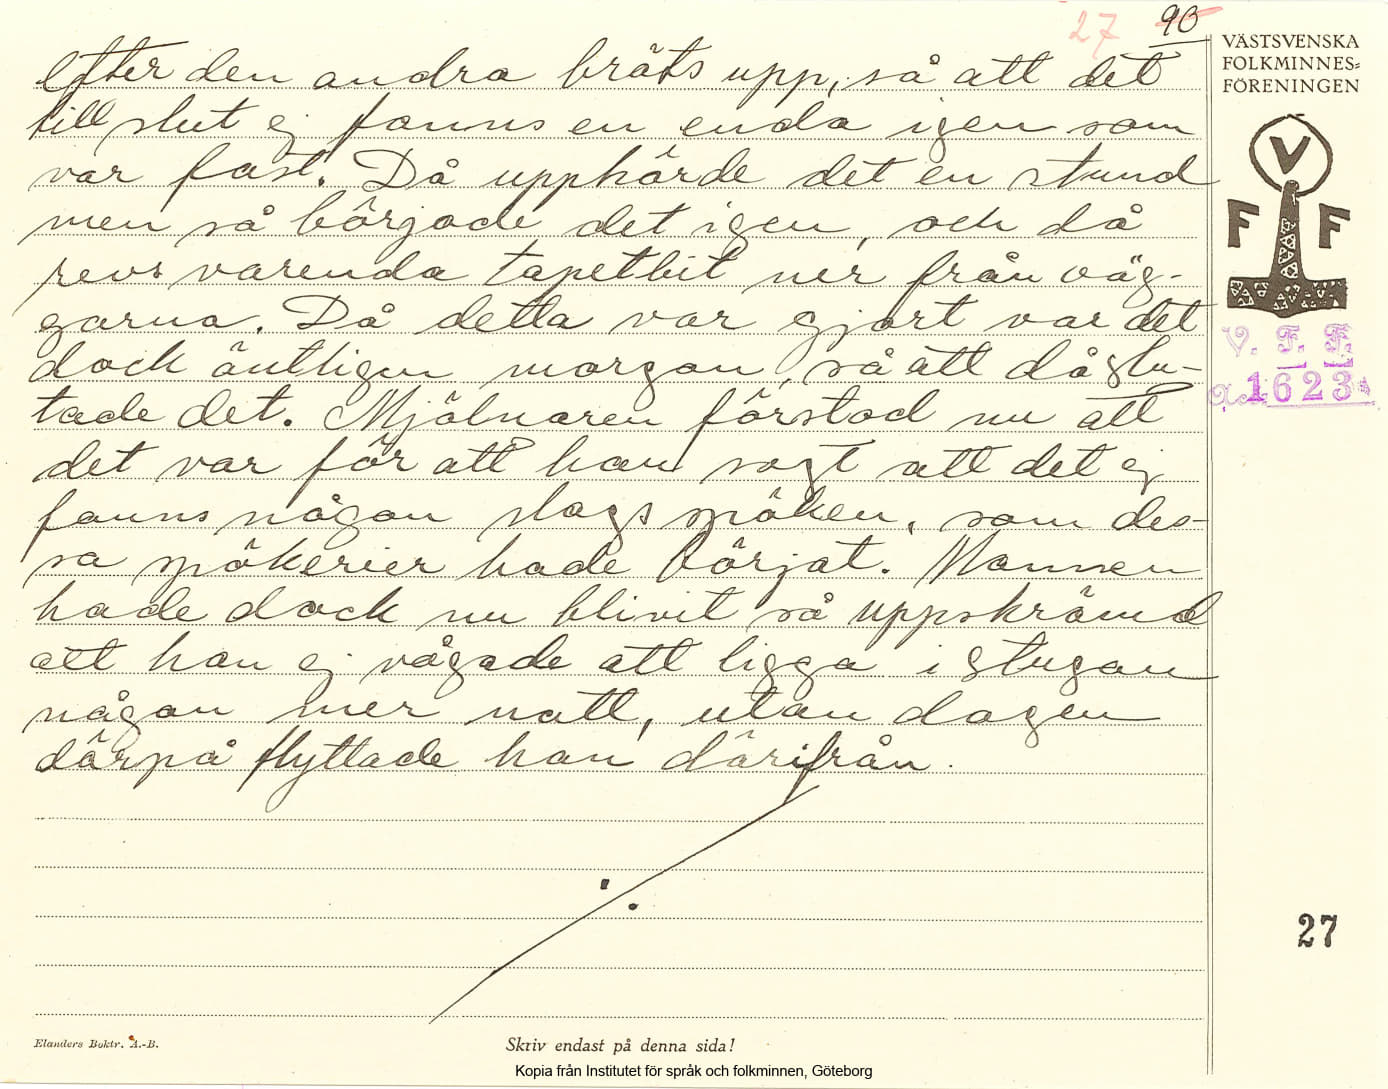 27 90
efter den andra bräts upp, så att det
till slut ej fanns en enda igen som
var fast. Då upphörde det en stund
men så började det igen, och då
revs varenda tapetbit ner från väg-
garna. Då detta var gjort var det
dock äntligen morgon, så att då slu-
tade det. Mjölnaren förstod nu att
det var för att han sagt att det ej
fanns någon slags spöken, som des-
sa spökerier hade börjat. Mannen
hade dock nu blivit så uppskrämd
att han ej vågade att ligga i stugan
någon mer natt, utan dagen
därpå flyttade han därifrån.
VÄSTSVENSKA
FOLKMINNES=
FÖRENINGEN
V
F F
V. F. F.
1623
27
Elanders Boktr. A.-B.
Skriv endast på denna sida!
Kopia från Institutet för språk och folkminnen, Göteborg